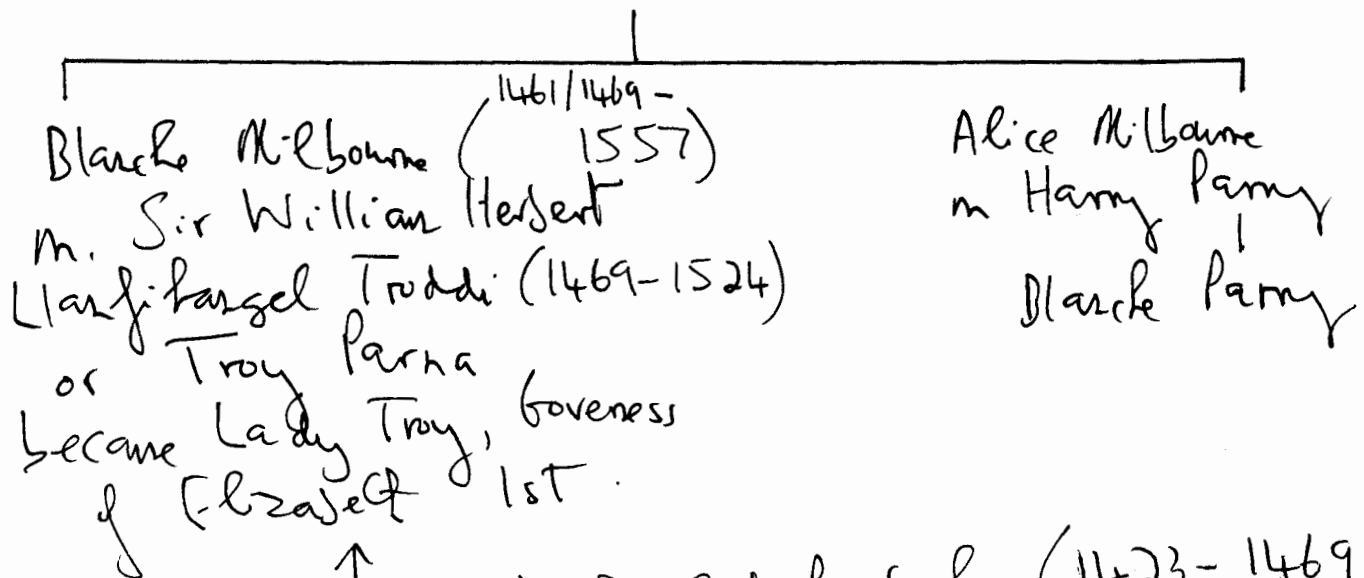 Blanche Milbourne (1461/1469 - 1557)
m. Sir William Herbert
Llanfihangel Troddi (1469-1524)
or Troy Parna
became Lady Troy, Goveness
of Elizabeth 1st.
Alice Milbourne
m Harry Parry
Blanche Parry
(1423-1469